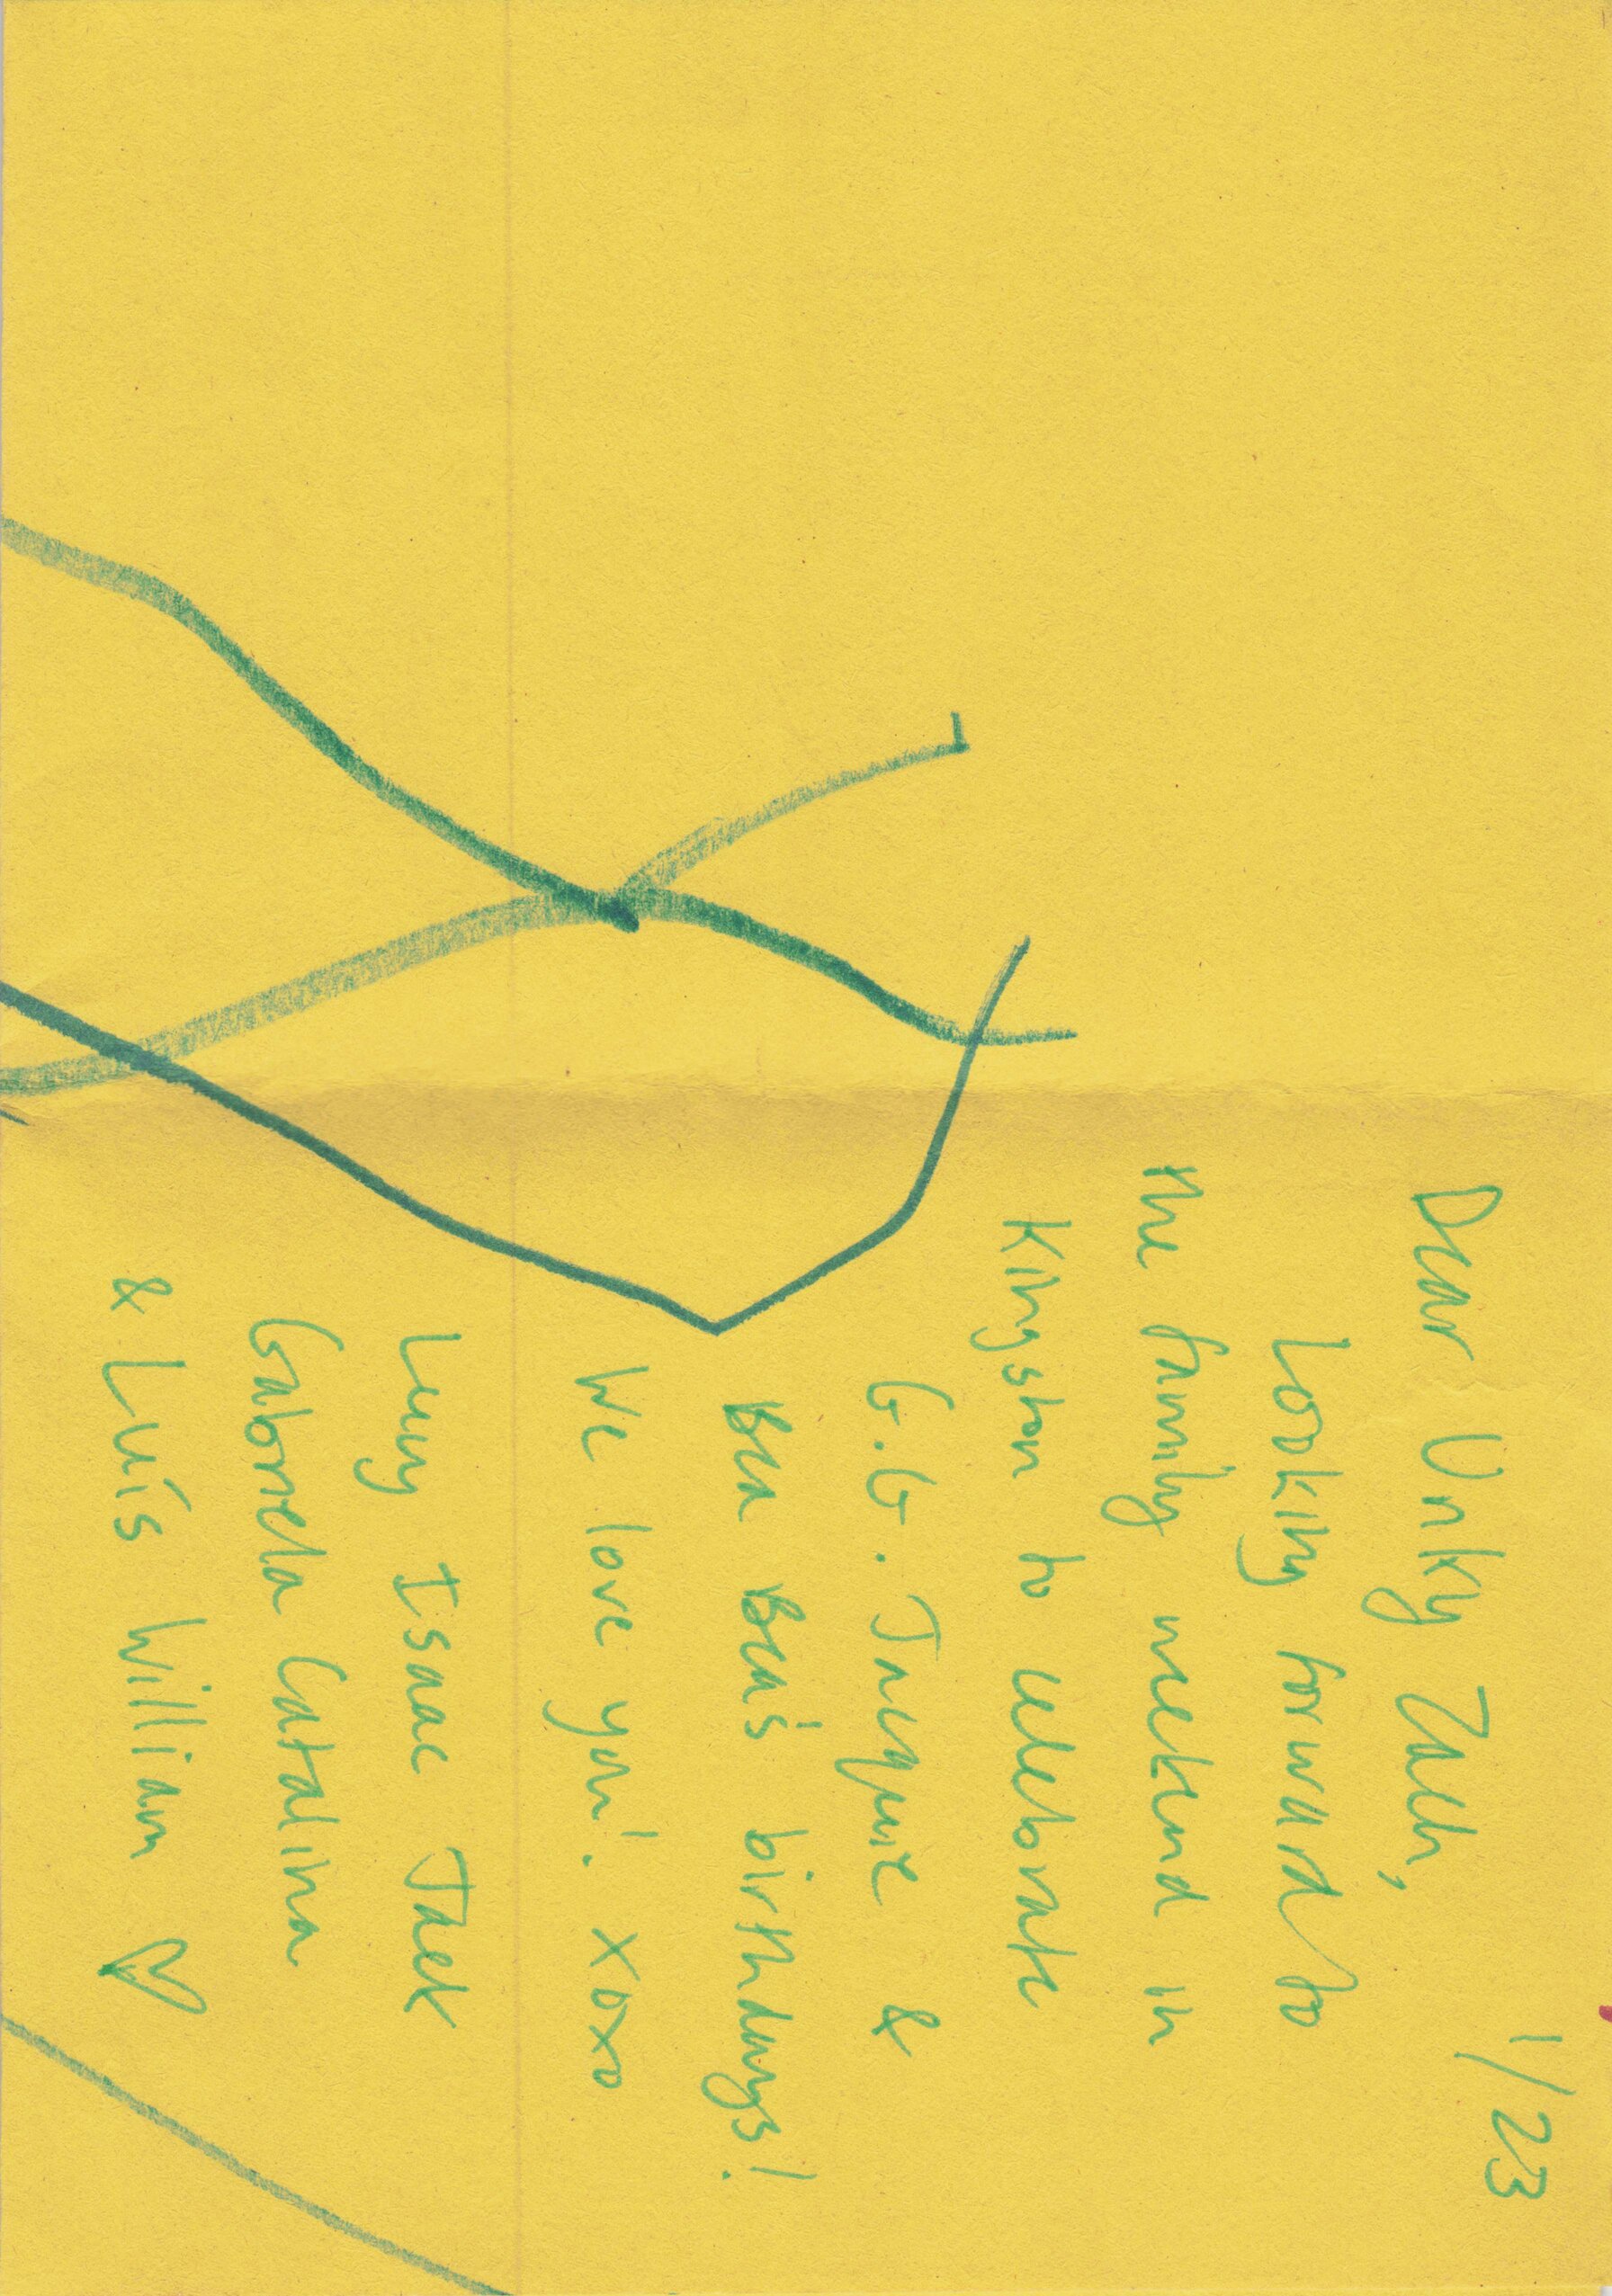 1/23
Dear Unky Zach,
Looking forward to
the family weekend in
Kingston to celebrate
G.G. Jacquie &
Bea Bea's birthdays!
We love you! xoxo
Levy Isaac Jack
Gabriela Catalina
& Luís William ♡